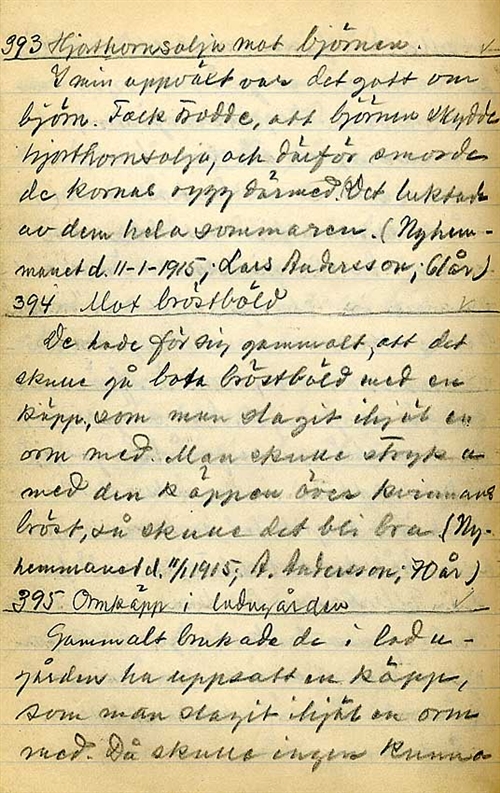 393 Hjorthornsolja mot björnen.
I min uppväxt var det gott om
björn. Folk trodde, att björnen skydde
hjorthornsolja, och därför smorde
de kornas rygg därmed. Det luktade
av dem hela sommaren. (Nyhem-
manet d. 11-1-1915; Lars Andersson; 61 år)
394 Mot bröstböld
De hade för sig gammalt, att det
skulle gå bota bröstböld med en
käpp, som man slagit ihjäl en
orm med. Man skulle stryka
med den käppen över kvinnans
bröst, så skulle det bli bra. (Ny-
hemmanet d. 11/1 1915; A. Andersson; 70 år)
395 Ormkäpp i ladugården
Gammalt brukade de i ladu-
gården ha uppsatt en käpp,
som man slagit ihjäl en orm
med. Då skulle ingen kunna